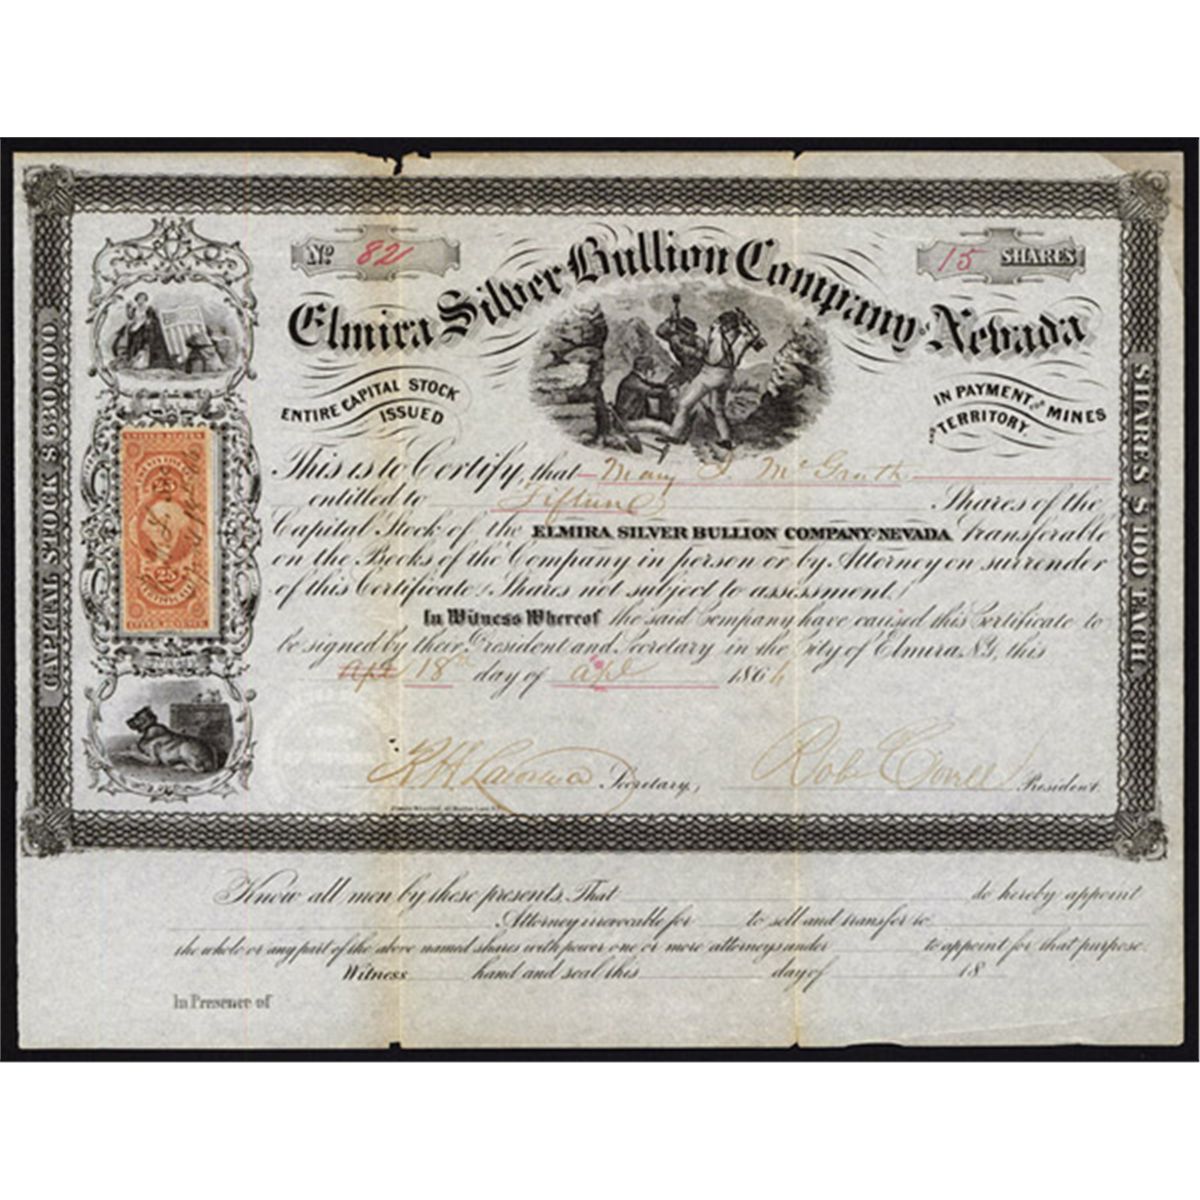 No 82
15 SHARES
Elmira Silver Bullion Company of Nevada
ENTIRE CAPITAL STOCK
ISSUED
IN PAYMENT FOR MINES
AND TERRITORY.
CAPITAL STOCK
SHARES $100 EACH.
UNITED STATES
25 25
CERTIFICATE
This is to Certify, that Mary McGrath
entitled to Fifteen Shares of the
Capital Stock of the ELMIRA SILVER BULLION COMPANY NEVADA, Transferable
on the Books of the Company in person or by Attorney on surrender
of this Certificate. Shares not subject to assessment.
In Witness Whereof the said Company have caused this Certificate to
be signed by their President and Secretary in the City of Elmira N.Y., this
Apl 18th day of Apl 186
Secretary, President.
Know all men by these presents, That do hereby appoint
Attorney irrevocable for to sell and transfer to
the whole or any part of the above named shares with power one or more attorneys under to appoint for that purpose.
Witness hand and seal this day of 18
In Presence of